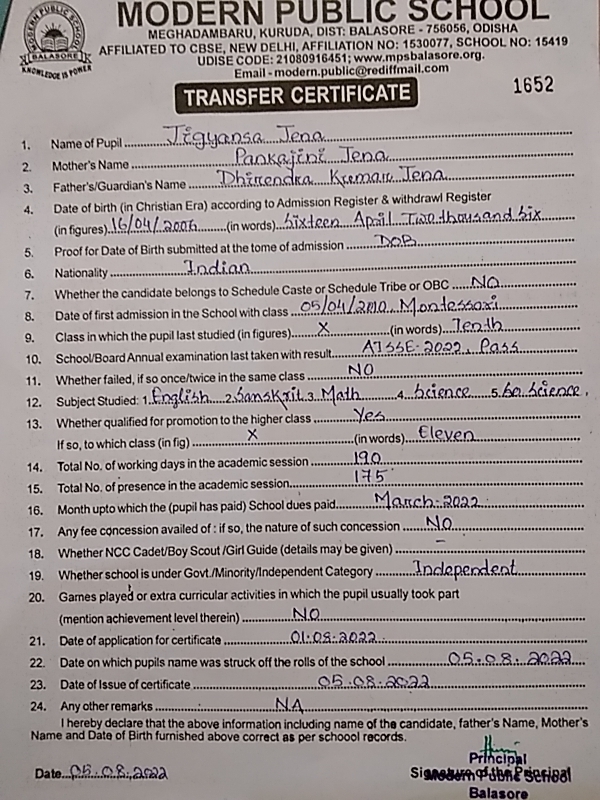 MODERN PUBLIC SCHOOL
MODERN PUBLIC SCHOOL
BALASORE
KNOWLEDGE IS POWER
MEGHADAMBARU, KURUDA, DIST: BALASORE - 756056, ODISHA
AFFILIATED TO CBSE, NEW DELHI, AFFILIATION NO: 1530077, SCHOOL NO: 15419
UDISE CODE: 21080916451; www.mpsbalasore.org.
Email - modern.public@rediffmail.com
TRANSFER CERTIFICATE
1652
1. Name of Pupil Jigyansa Jena
2. Mother's Name Pankajini Jena
3. Father's/Guardian's Name Dhirendra Kumar Jena
4. Date of birth (in Christian Era) according to Admission Register & withdrawl Register
(in figures) 16/04/2006 (in words) Sixteen April Two thousand Six
5. Proof for Date of Birth submitted at the tome of admission DOB
6. Nationality Indian
7. Whether the candidate belongs to Schedule Caste or Schedule Tribe or OBC NO
8. Date of first admission in the School with class 05/04/2010 Montessori
9. Class in which the pupil last studied (in figures) X (in words) Tenth
10. School/Board Annual examination last taken with result AISSE-2022, Pass
11. Whether failed, if so once/twice in the same class NO
12. Subject Studied: 1. English 2. Sanskrit 3. Math 4. Science 5. So. Science.
13. Whether qualified for promotion to the higher class Yes
If so, to which class (in fig) X (in words) Eleven
14. Total No. of working days in the academic session 190
15. Total No. of presence in the academic session 175
16. Month upto which the (pupil has paid) School dues paid March-2022
17. Any fee concession availed of : if so, the nature of such concession NO
18. Whether NCC Cadet/Boy Scout /Girl Guide (details may be given) –
19. Whether school is under Govt./Minority/Independent Category Independent
20. Games played or extra curricular activities in which the pupil usually took part
(mention achievement level therein) NO
21. Date of application for certificate 01.08.2022
22. Date on which pupils name was struck off the rolls of the school 05.08.2022
23. Date of Issue of certificate 05.08.2022
24. Any other remarks NA
I hereby declare that the above information including name of the candidate, father's Name, Mother's
Name and Date of Birth furnished above correct as per schoool records.
Principal
Date 05.08.2022 Signature of the Principal
Modern Public School
Balasore